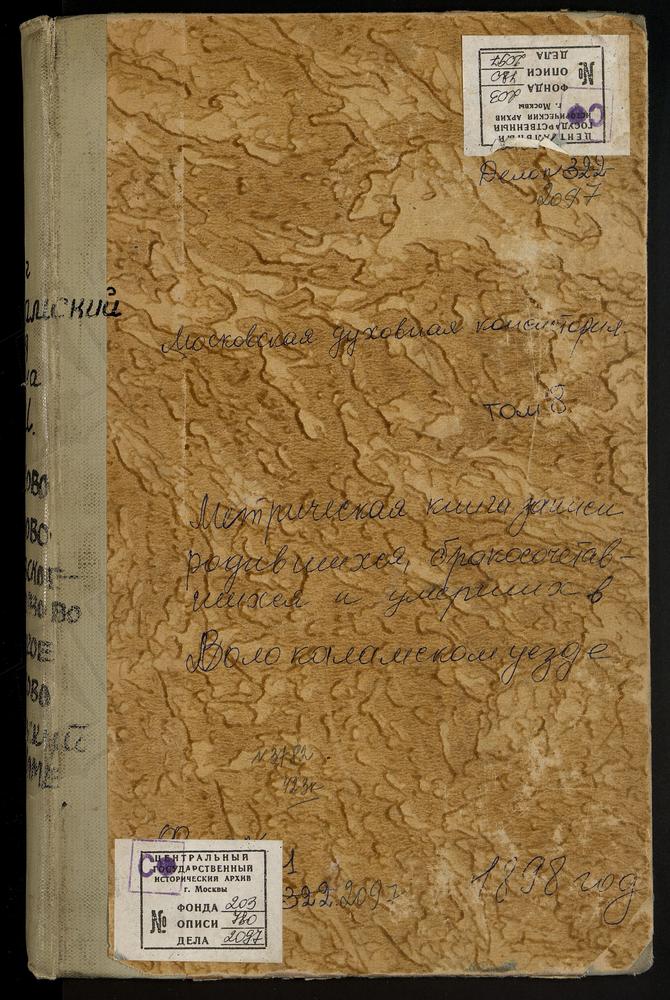 ЦЕНТРАЛЬНЫЙ
ГОСУДАРСТВЕННЫЙ
ИСТОРИЧЕСКИЙ АРХИВ
г. Москвы
№
ФОНДА 203
ОПИСИ 780
ДЕЛА 2097
Дело №322
2097
Московская духовная консистория.
том 8
Метрическая книга записи
родившихся, бракосочетав-
шихся и умерших в
Волоколамском уезде
1898 год
322 2097
ЦЕНТРАЛЬНЫЙ
ГОСУДАРСТВЕННЫЙ
ИСТОРИЧЕСКИЙ АРХИВ
г. Москвы
№
ФОНДА 203
ОПИСИ 780
ДЕЛА 2097